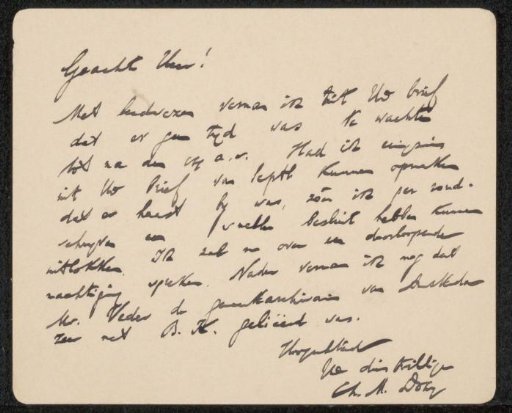 Geacht Heer!
Met leedwezen vernam ik uit Uw brief
dat er geen tijd was te wachten
tot na den a.v. Had ik enigszins
uit Uw brief van Sept. kunnen opmaken
dat er haast bij was, zou ik per rond-
schrijven een sneller besluit hebben kunnen
uitlokken. Ik zal nu over een doorloopende
machtiging spreken. Nader vernam ik nog dat
Mr. Veder de gemeentearchivaris van Amsterdam
zeer met B. K. gelieerd was.
Hoogachtend
Uw dienstwillige
Ch. M. Dozy